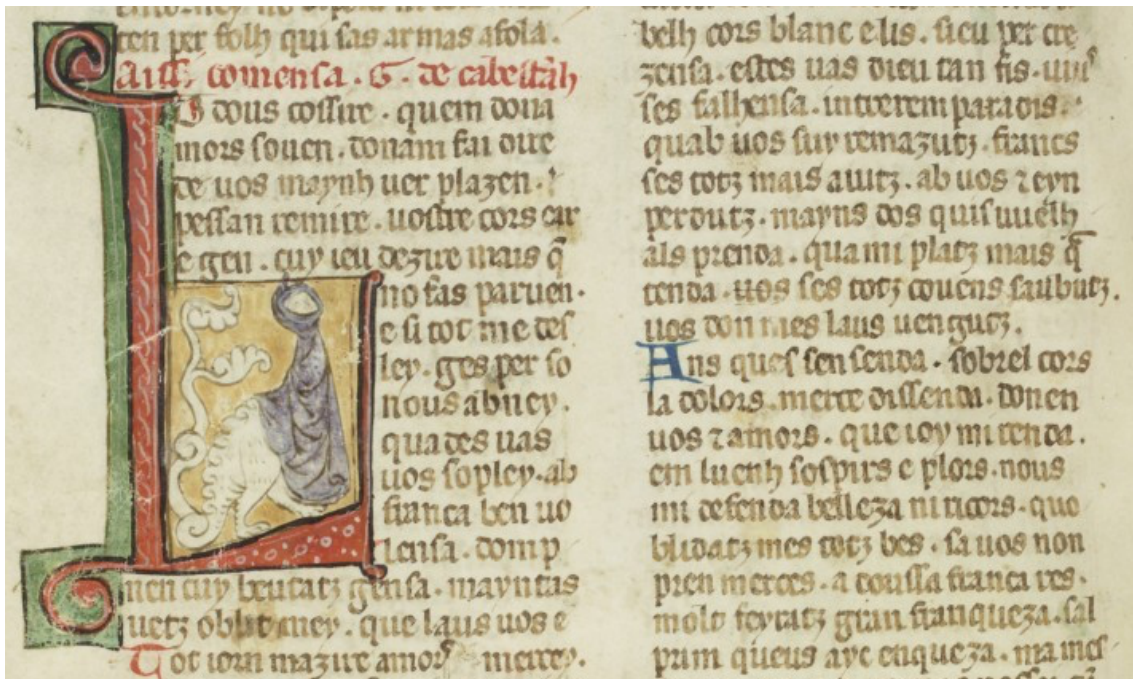 ten per folh qui sas armas afola.
Aissi comensa. G. de cabestanh
Li dous cossire. quem dona
mors soven. donam fai dire
de uos maynh uer plazen.
pessan remire. uostre cors car
e gen. cuy ieu dezire mais q̄
no fas paruen.
e si tot me des
ley. ges per so
nous abney.
quades uas
uos sopley. ab
franca ben uo
lensa. domp
nen cuy beutatz gensa. mayntas
uetz oblit mey. que laus uos e
Tot iorn mazire amors mercey.
belh cors blanc e lis. sieu per cre
zensa. estes uas dieu tan fis. uius
ses falhensa. intrerem paradis.
quab uos suy remazutz. francs
ses totz mais aiutz. ab uos ⁊ eyn
perdutz. mayns dos quis uuelh
als prenda. qua mi platz mais q̄
tenda. uos ses totz couens saubutz.
uos don mes laus uengutz.
Ans ques sen senda. sobrel cors
la dolors. merce dissenda. donen
uos ⁊ amors. que ioy mi renda.
em luenh sospirs e plors. nous
mi defenda belleza ni ricors. quo
blidatz mes totz bes. sa uos non
pren merces. a doussa franca res.
molt feyratz gran franqueza. sal
prim queus ayc enqueza. ma mes